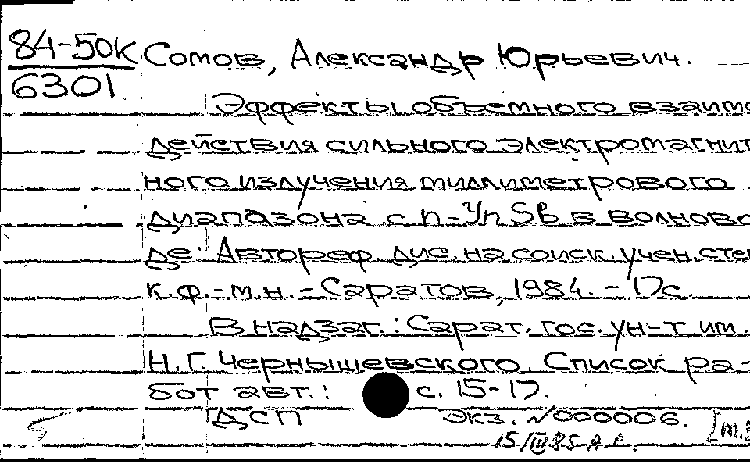 84-50к Сомов, Александр Юрьевич.
6301
Эффекты объемного взаимо
действия сильного электромагнит
ного излучения миллиметрового
диапазона с n-InSb в волново
де: Автореф. дис. на соиск. учен. сте
к.ф.-м.н. - Саратов, 1984. - 17с.
В надзаг.: Сарат. гос. ун-т им.
Н.Г. Чернышевского. Список ра-
бот авт.: с. 15-17.
ДСП экз. №000006.
15/III 85